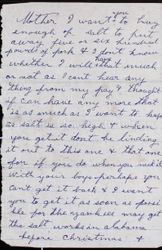 you
Mother I want to buy
enough of salt to put
away five or six hundred
pounds of pork & I don't know
whether I will that much
or not as I can't hear any
thing from my pay & thought
if I can have any more that
is as much as I want to keep
as salt is so high & where
you get it don't be
it out to this one & that one
for if you do when you need it
with your boys perhaps you
cant get it back & I want
you to get it as soon as possi
ble for the yankees may get
the salt works in alabama
before christmas &